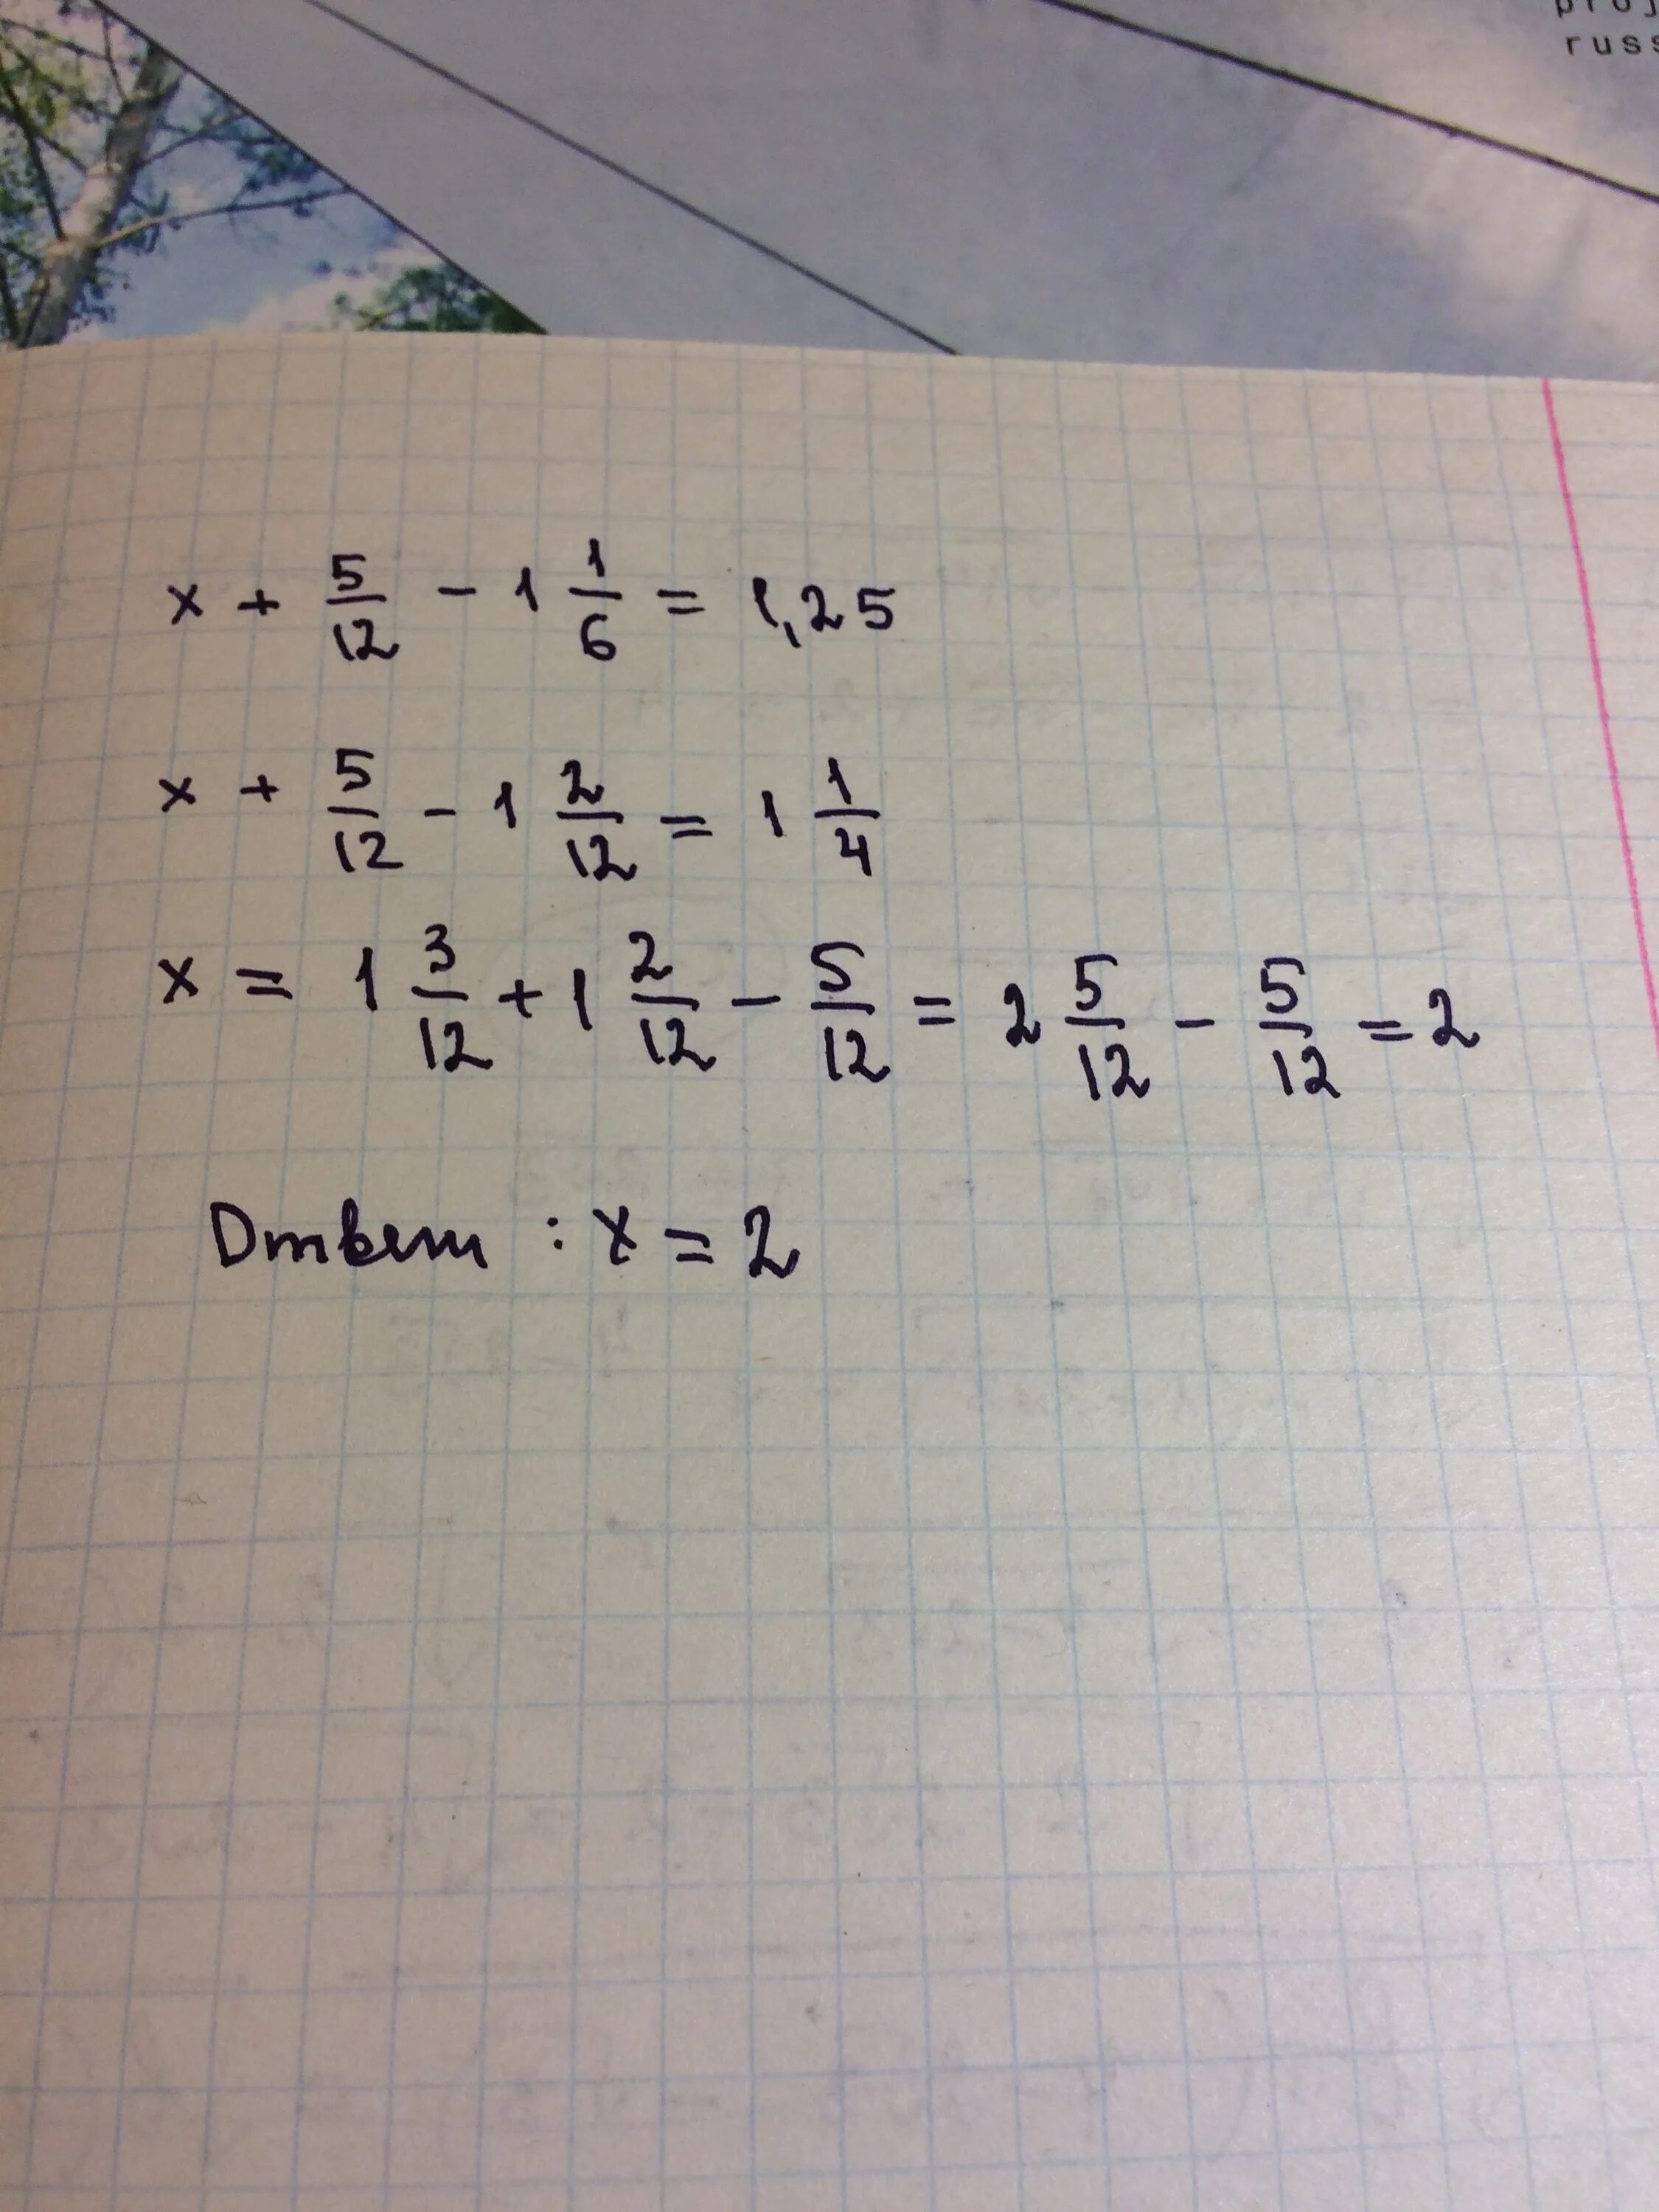 proj
russ
x + 5/12 - 1 1/6 = 1,25
x + 5/12 - 1 2/12 = 1 1/4
x = 1 3/12 + 1 2/12 - 5/12 = 2 5/12 - 5/12 = 2
Ответ : x = 2